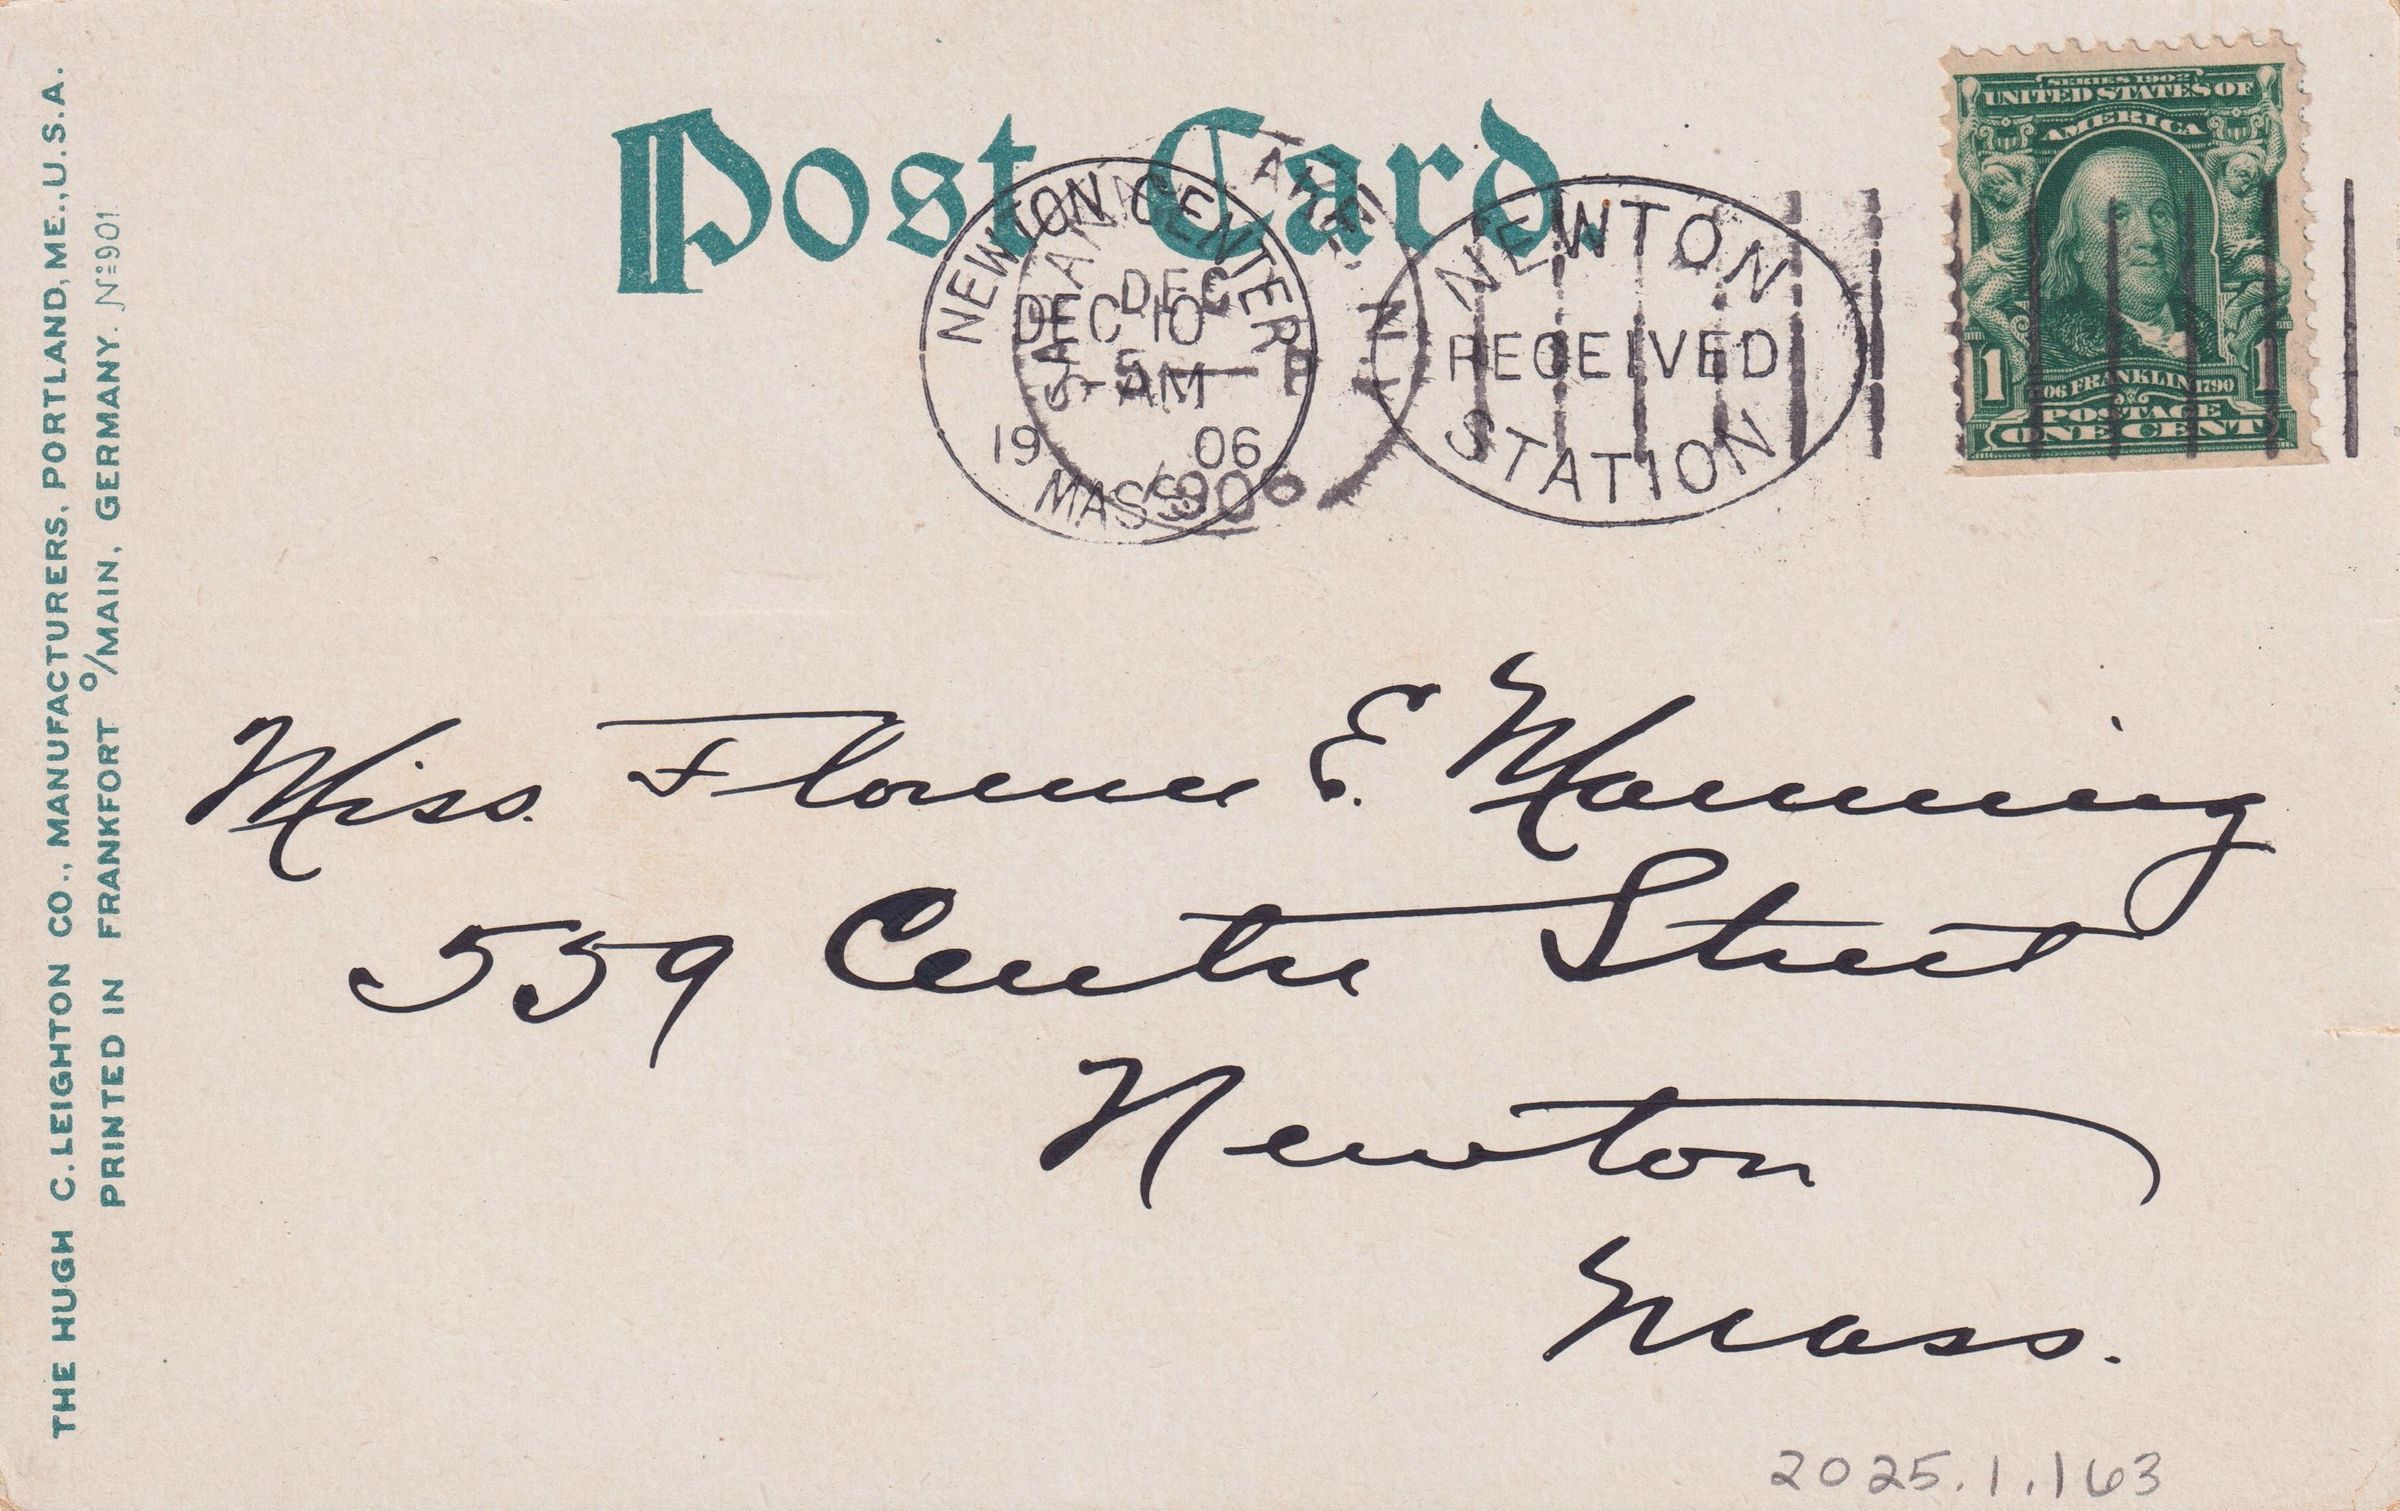 THE HUGH C. LEIGHTON CO., MANUFACTURERS, PORTLAND, ME., U.S.A.
PRINTED IN FRANKFORT O/MAIN, GERMANY. Nº 901
Post Card.
SERIES 1902
UNITED STATES OF
AMERICA
1 1
FRANKLIN 1790
POSTAGE
ONE CENT
NEWTON CENTER
DEC 10
AM
19 06
MASS.
SARANAC LAKE
DEC
5 - P
N.Y.
1906
NEWTON
RECEIVED
STATION
Miss. Florence E. Manning
559 Centre Street
Newton
Mass.
2025.1.163